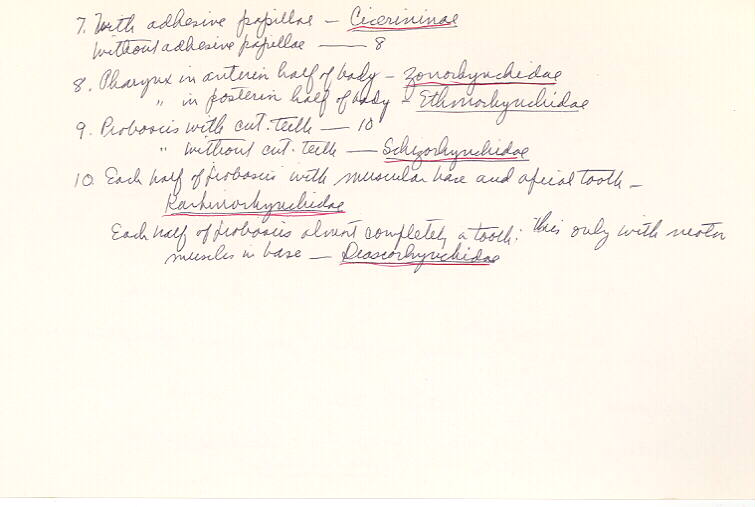 7. With adhesive papillae – Cicerininae
Without adhesive papillae —— 8
8. Pharynx in anterior half of body – Zonorhynchidae
" in posterior half of body – Ethmorhynchidae
9. Proboscis with cut. teeth — 10
" without cut. teeth — Schizorhynchidae
10. Each half of proboscis with muscular base and apical tooth –
Karkinorhynchidae
Each half of proboscis almost completely a tooth: this only with motor
muscles in base — Diascorhynchidae